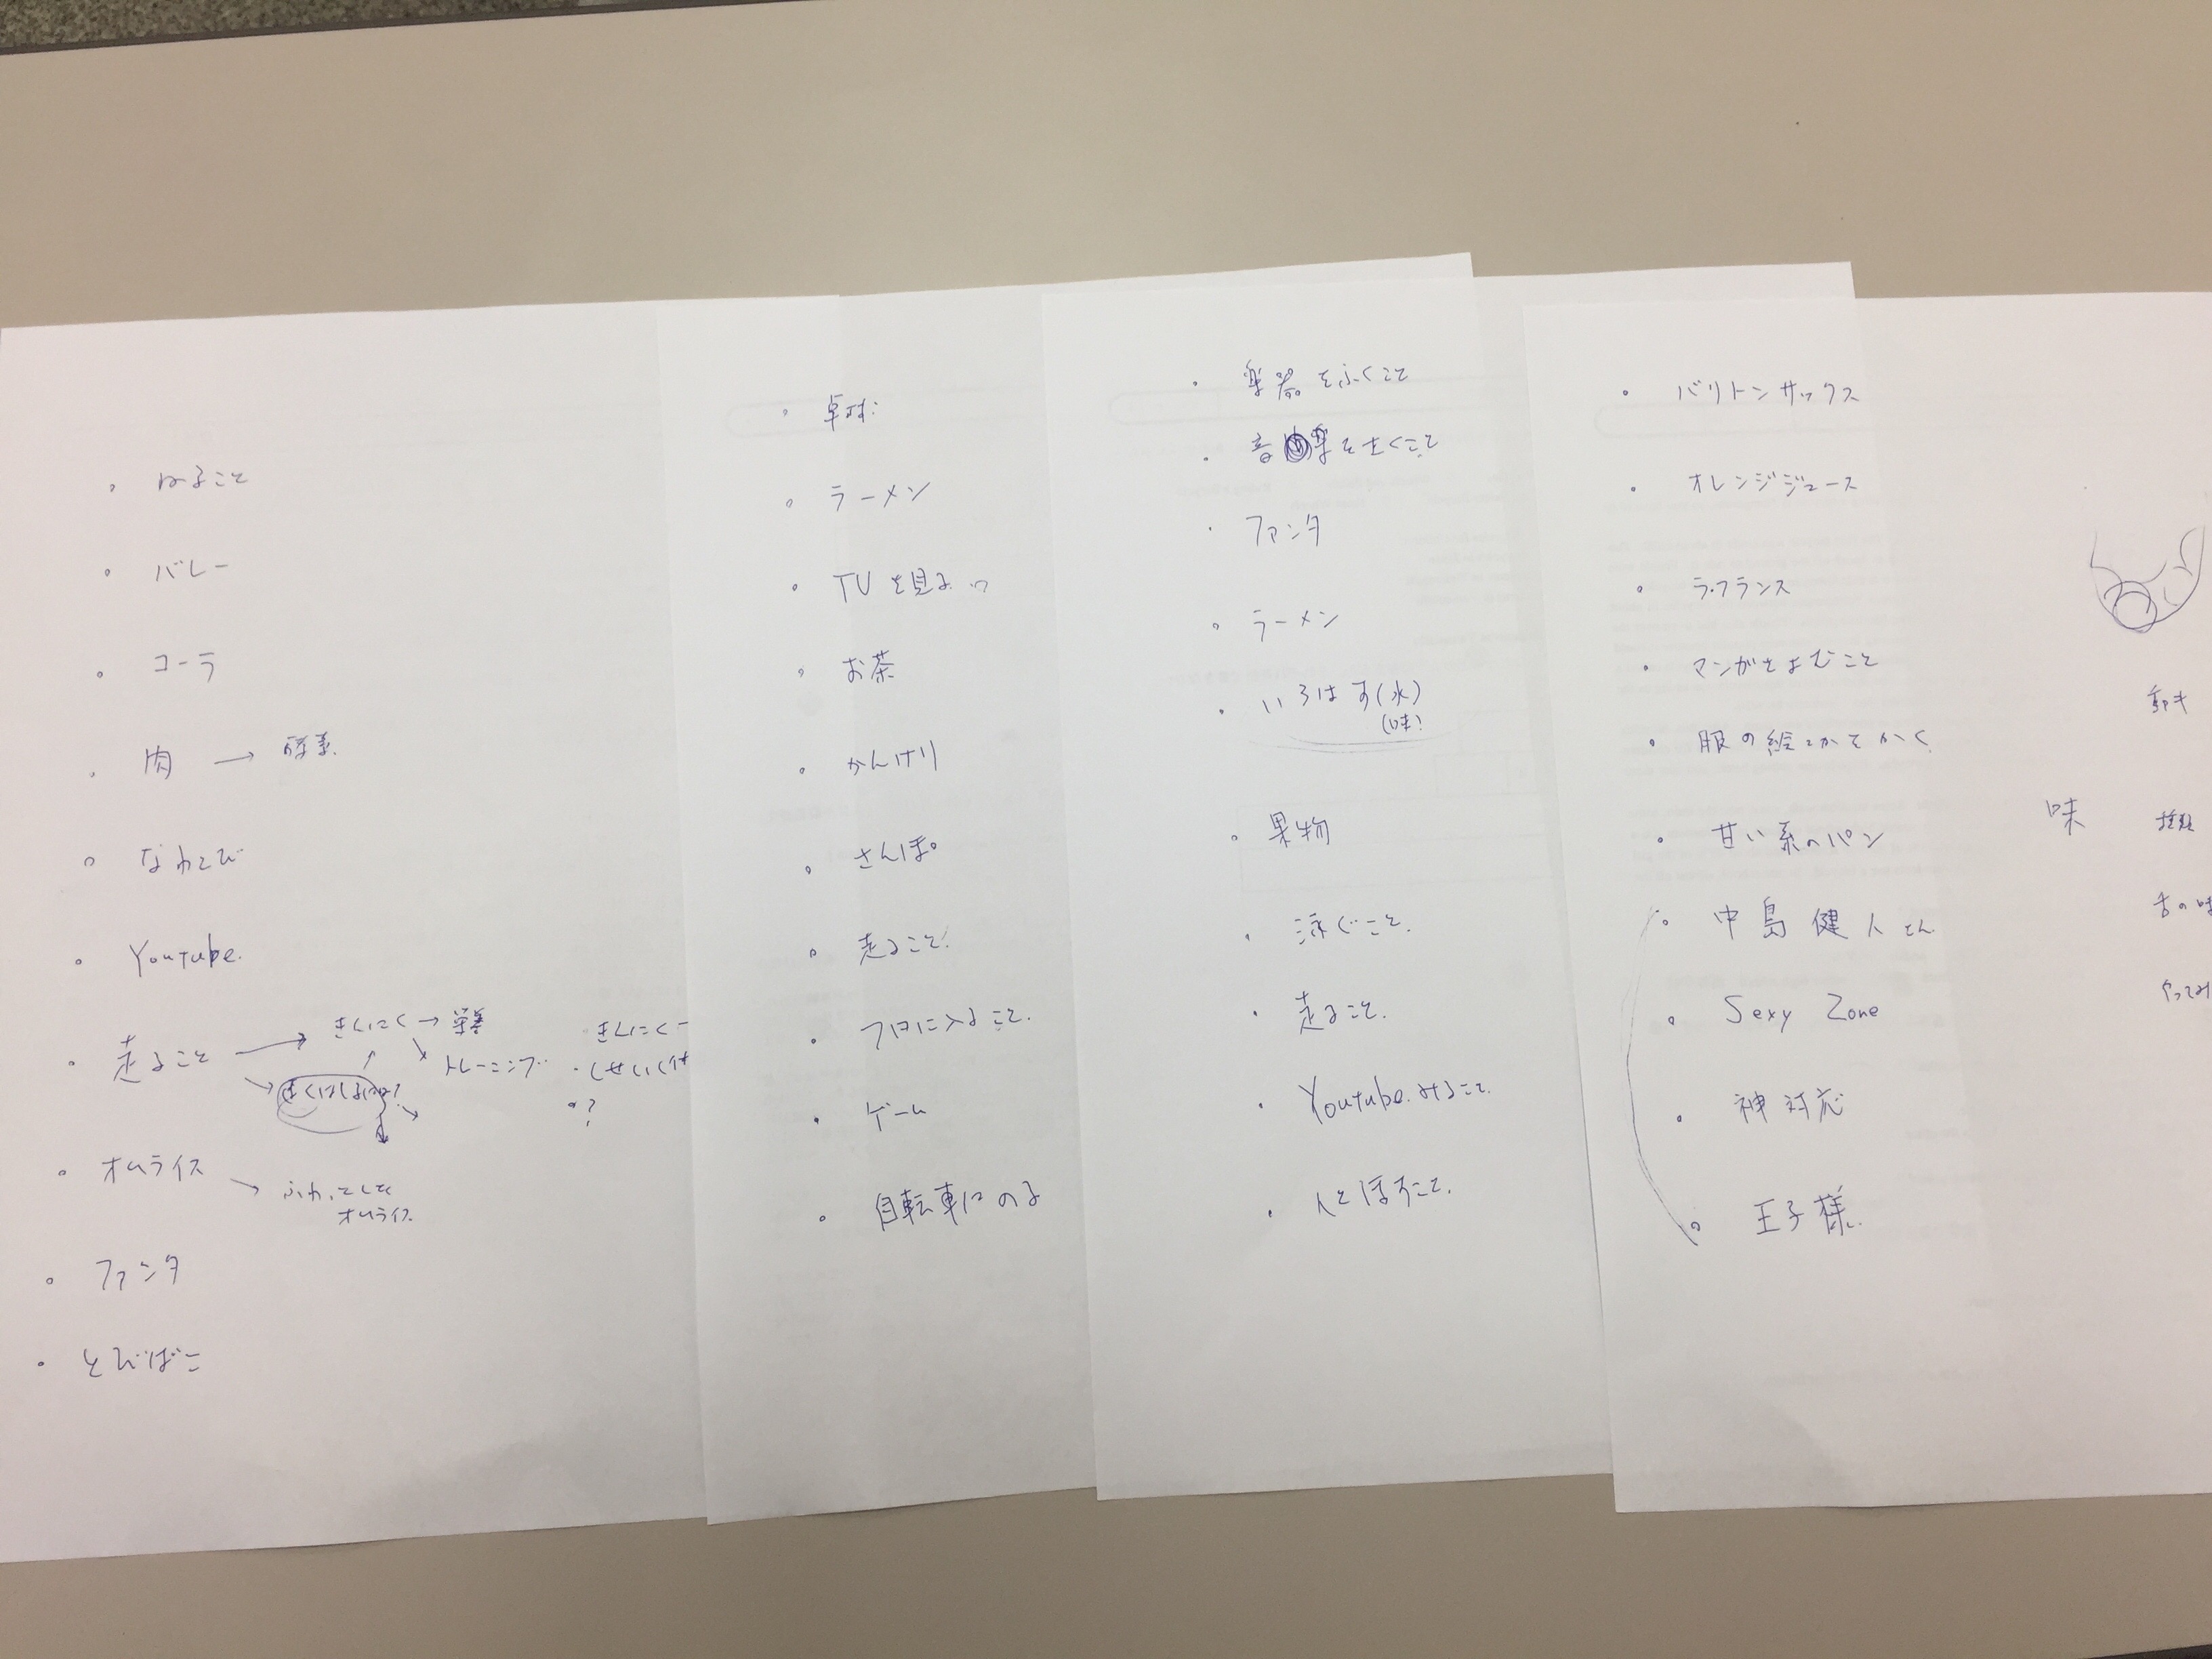 ・ ねること
・ バレー
・ コーラ
・ 肉 → 酵素
・ なわとび
・ Youtube.
・ 走ること → きんにく →
トレーニング
きんにく
・?
・ オムライス →
オムライス
・ ファンタ
・ とびばこ
・ 卓球
・ ラーメン
・ TVを見る
・ お茶
・ かんけり
・ さんぽ
・ 走ること.
・ フロに入ること.
・ ゲーム
・ 自転車にのる
・ 楽器をふくこと
・ 音楽をきくこと
・ ファンタ
・ ラーメン
・ いろはす(水)
(味)
・ 果物
・ 泳ぐこと.
・ 走ること.
・ Youtube.みること.
・ 人とほすこと.
・ バリトンサックス
・ オレンジジュース
・ ラ・フランス
・ マンガをよむこと
・ 服の絵とかをかく
・ 甘い系のパン
・ 中島健人さん
・ Sexy Zone
・ 神対応
・ 王子様.
味
舌の味
やってみ